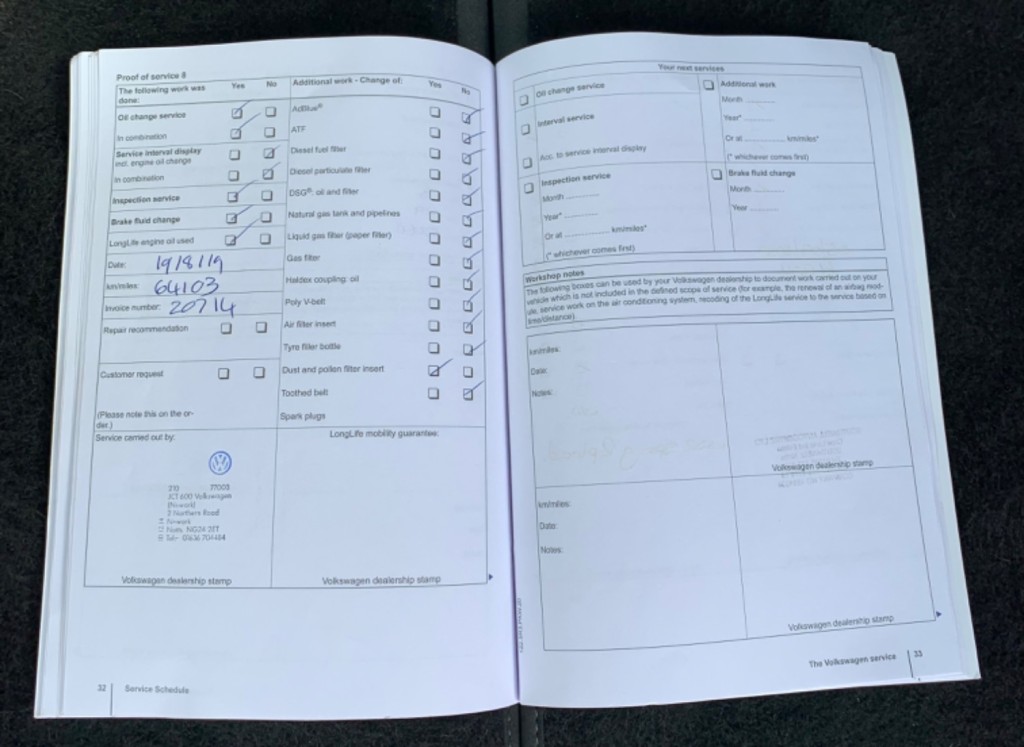 Proof of service 8
The following work was done: Yes No
Oil change service
In combination
Service interval display
incl. engine oil change
In combination
Inspection service
Brake fluid change
LongLife engine oil used
Date: 19/8/19
km/miles: 64103
Invoice number: 20714
Repair recommendation
Customer request
(Please note this on the or-
der.)
Service carried out by:
JCT 600 Volkswagen
(Newark)
2 Northern Road
Newark
Notts NG24 2ET
Tel:- 01636 704484
Volkswagen dealership stamp
Additional work - Change of: Yes No
AdBlue®
ATF
Diesel fuel filter
Diesel particulate filter
DSG®: oil and filter
Natural gas tank and pipelines
Liquid gas filter (paper filter)
Gas filter
Haldex coupling: oil
Poly V-belt
Air filter insert
Tyre filler bottle
Dust and pollen filter insert
Toothed belt
Spark plugs
LongLife mobility guarantee:
Volkswagen dealership stamp
32 Service Schedule
Your next services
Oil change service
Interval service
Acc. to service interval display
Inspection service
Month ............
Year* ............
Or at ............ km/miles*
(* whichever comes first)
Additional work
Month ............
Year* ............
Or at ............ km/miles*
(* whichever comes first)
Brake fluid change
Month ............
Year ............
Workshop notes
The following boxes can be used by your Volkswagen dealership to document work carried out on your
vehicle which is not included in the defined scope of service (for example, the renewal of an airbag mod-
ule, service work on the air conditioning system, recoding of the LongLife service to the service based on
time/distance)
km/miles:
Date:
Notes:
Volkswagen dealership stamp
km/miles:
Date:
Notes:
Volkswagen dealership stamp
The Volkswagen service 33